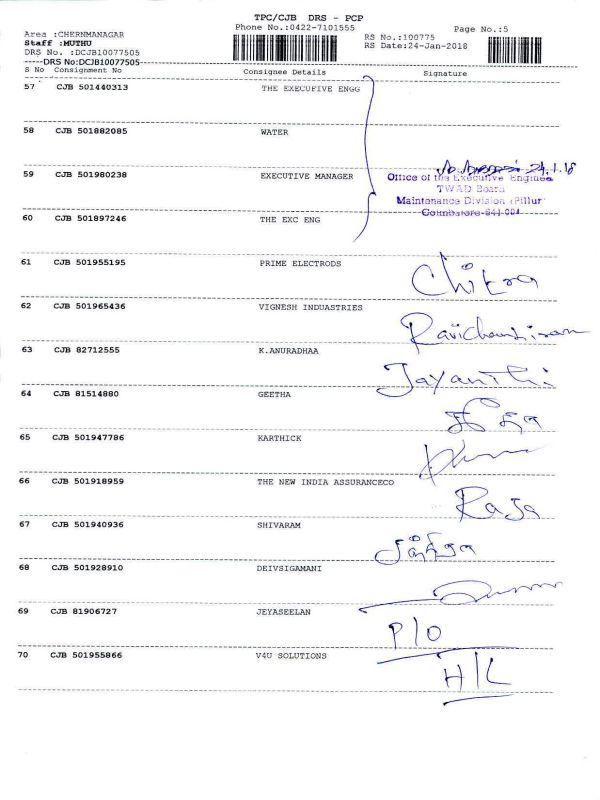 TPC/CJB DRS - PCP
Area :CHERNMANAGAR Phone No.:0422-7101555 Page No.:5
Staff :MUTHU RS No.:100775
DRS No. :DCJB10077505 RS Date:24-Jan-2018
-----DRS No:DCJB10077505-----
S No Consignment No Consignee Details Signature
57 CJB 501440313 THE EXECUFIVE ENGG
58 CJB 501882085 WATER
24.1.18
59 CJB 501980238 EXECUTIVE MANAGER Office of the Executive Engineer
TWAD Board
Maintenance Division (Pillur
60 CJB 501897246 THE EXC ENG Coimbatore-641 001
61 CJB 501955195 PRIME ELECTRODS Chitra
62 CJB 501965436 VIGNESH INDUASTRIES Ravichandiran
63 CJB 82712555 K.ANURADHAA Jayanthi
64 CJB 81514880 GEETHA
65 CJB 501947786 KARTHICK
66 CJB 501918959 THE NEW INDIA ASSURANCECO Raja
67 CJB 501940936 SHIVARAM
68 CJB 501928910 DEIVSIGAMANI
69 CJB 81906727 JEYASEELAN P/O
70 CJB 501955866 V4U SOLUTIONS H/L